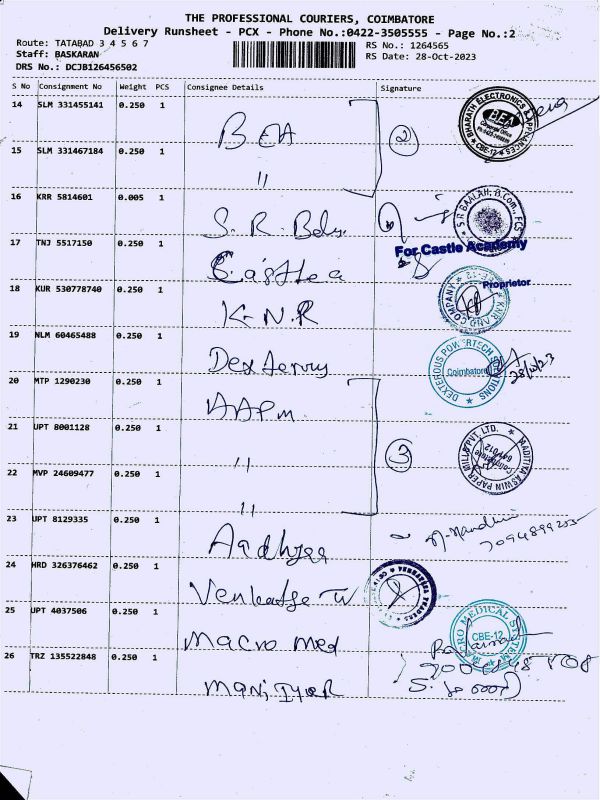 THE PROFESSIONAL COURIERS, COIMBATORE
Delivery Runsheet - PCX - Phone No.:0422-3505555 - Page No.:2
Route: TATABAD 3 4 5 6 7 RS No.: 1264565
Staff: BASKARAN RS Date: 28-Oct-2023
DRS No.: DCJB126456502
S No Consignment No Weight PCS Consignee Details Signature
14 SLM 331455141 0.250 1 BEA 2 BHARATH ELECTRONICS & APPLIANCES BEA CBE-12
15 SLM 331467184 0.250 1 "
16 KRR 5814601 0.005 1 S. R. S.R BAALAH, B.Com., FCS
For Castle Academy
17 TNJ 5517150 0.250 1
Proprietor
18 KUR 530778740 0.250 1 K-N.R KNR AND COMPANY
19 NLM 60465488 0.250 1 DEXTEROUS POWERTECH Coimbatore 28/10/23
20 MTP 1290230 0.250 1 AAPM
21 UPT 8001128 0.250 1 " 3 MADITIYA ASWIN PAPER MILLS PVT. LTD. Coimbatore 641012
22 MVP 24609477 0.250 1 "
23 UPT 8129335 0.250 1 Aadhyaa
24 HRD 326376462 0.250 1 VENKATESA TRADERS
25 UPT 4037506 0.250 1 Macro Med MACRO MEDICAL SYSTEM CBE-12
26 TRZ 135522848 0.250 1 Mani Iyer